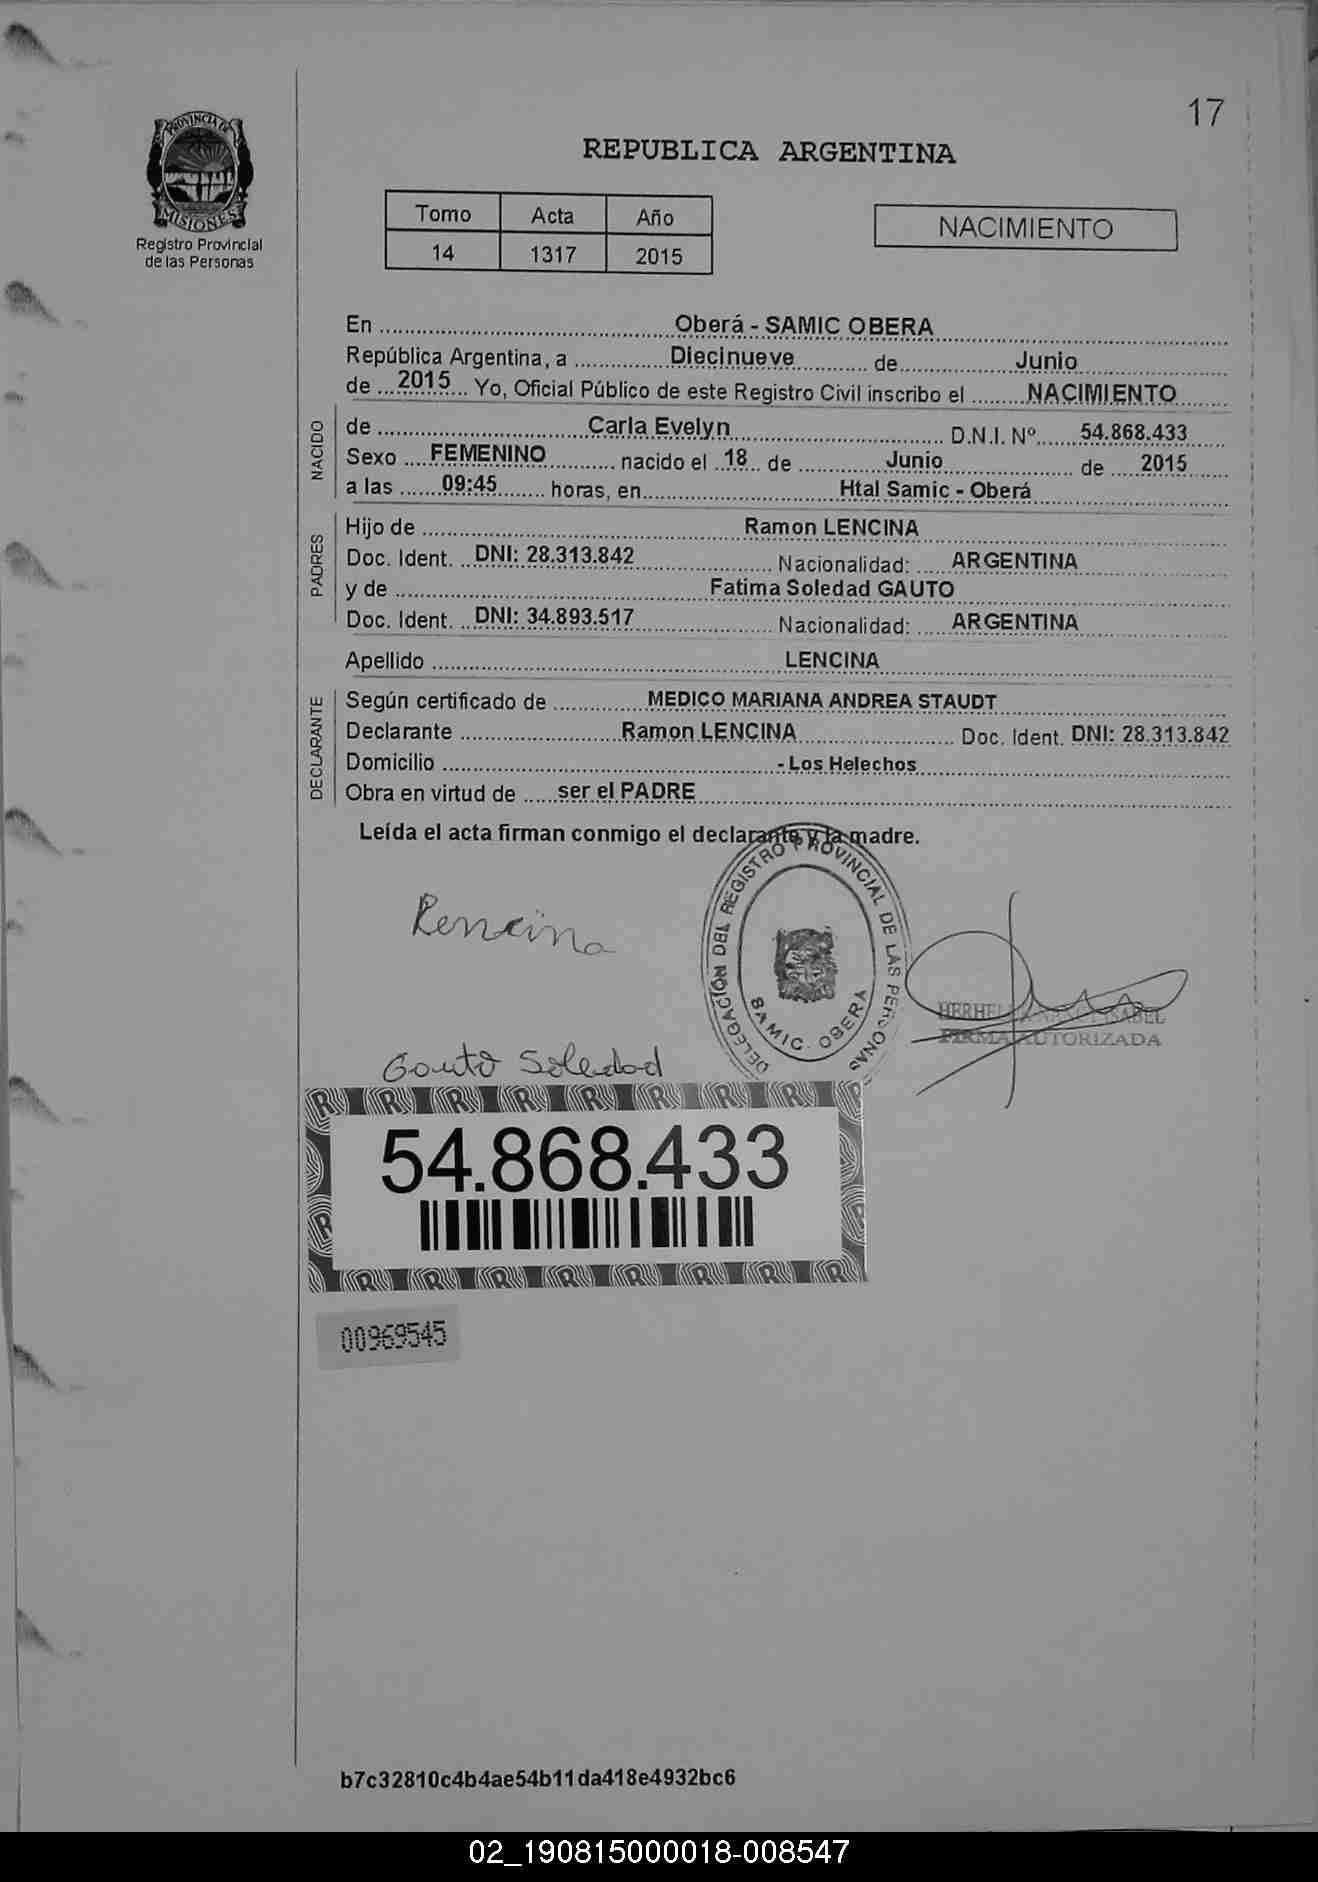 17
PROVINCIA DE
MISIONES
Registro Provincial
de las Personas
REPUBLICA ARGENTINA
Tomo Acta Año
14 1317 2015
NACIMIENTO
En Oberá - SAMIC OBERA
República Argentina, a Diecinueve de Junio
de 2015 Yo, Oficial Público de este Registro Civil inscribo el NACIMIENTO
NACIDO
de Carla Evelyn D.N.I. Nº 54.868.433
Sexo FEMENINO nacido el 18 de Junio de 2015
a las 09:45 horas, en Htal Samic - Oberá
PADRES
Hijo de Ramon LENCINA
Doc. Ident. DNI: 28.313.842 Nacionalidad: ARGENTINA
y de Fatima Soledad GAUTO
Doc. Ident. DNI: 34.893.517 Nacionalidad: ARGENTINA
Apellido LENCINA
DECLARANTE
Según certificado de MEDICO MARIANA ANDREA STAUDT
Declarante Ramon LENCINA Doc. Ident. DNI: 28.313.842
Domicilio - Los Helechos
Obra en virtud de ser el PADRE
Leída el acta firman conmigo el declarante y la madre.
DELEGACIÓN DEL REGISTRO PROVINCIAL DE LAS PERSONAS
SAMIC. OBERA
FIRMA AUTORIZADA
Gauto Soledad
54.868.433
00969545
b7c32810c4b4ae54b11da418e4932bc6
02_190815000018-008547